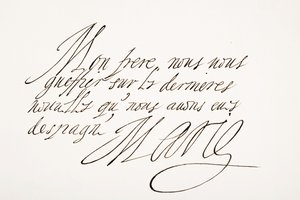 Mon frere nous nous
sur les dernieres
nouvelles qu'nous auons eus
despagn Marie